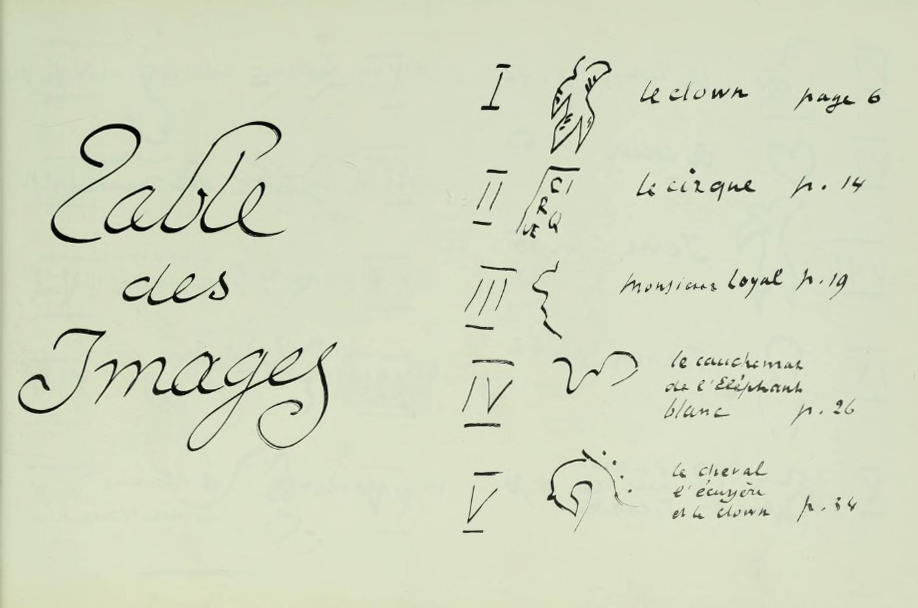 Table
des
Images
I le clown page 6
II CIRQUE le cirque p. 14
III Monsieur Loyal p. 19
IV le cauchemar
de l'Eléphant
blanc p. 26
V le cheval
l'écuyère
et le clown p. 34